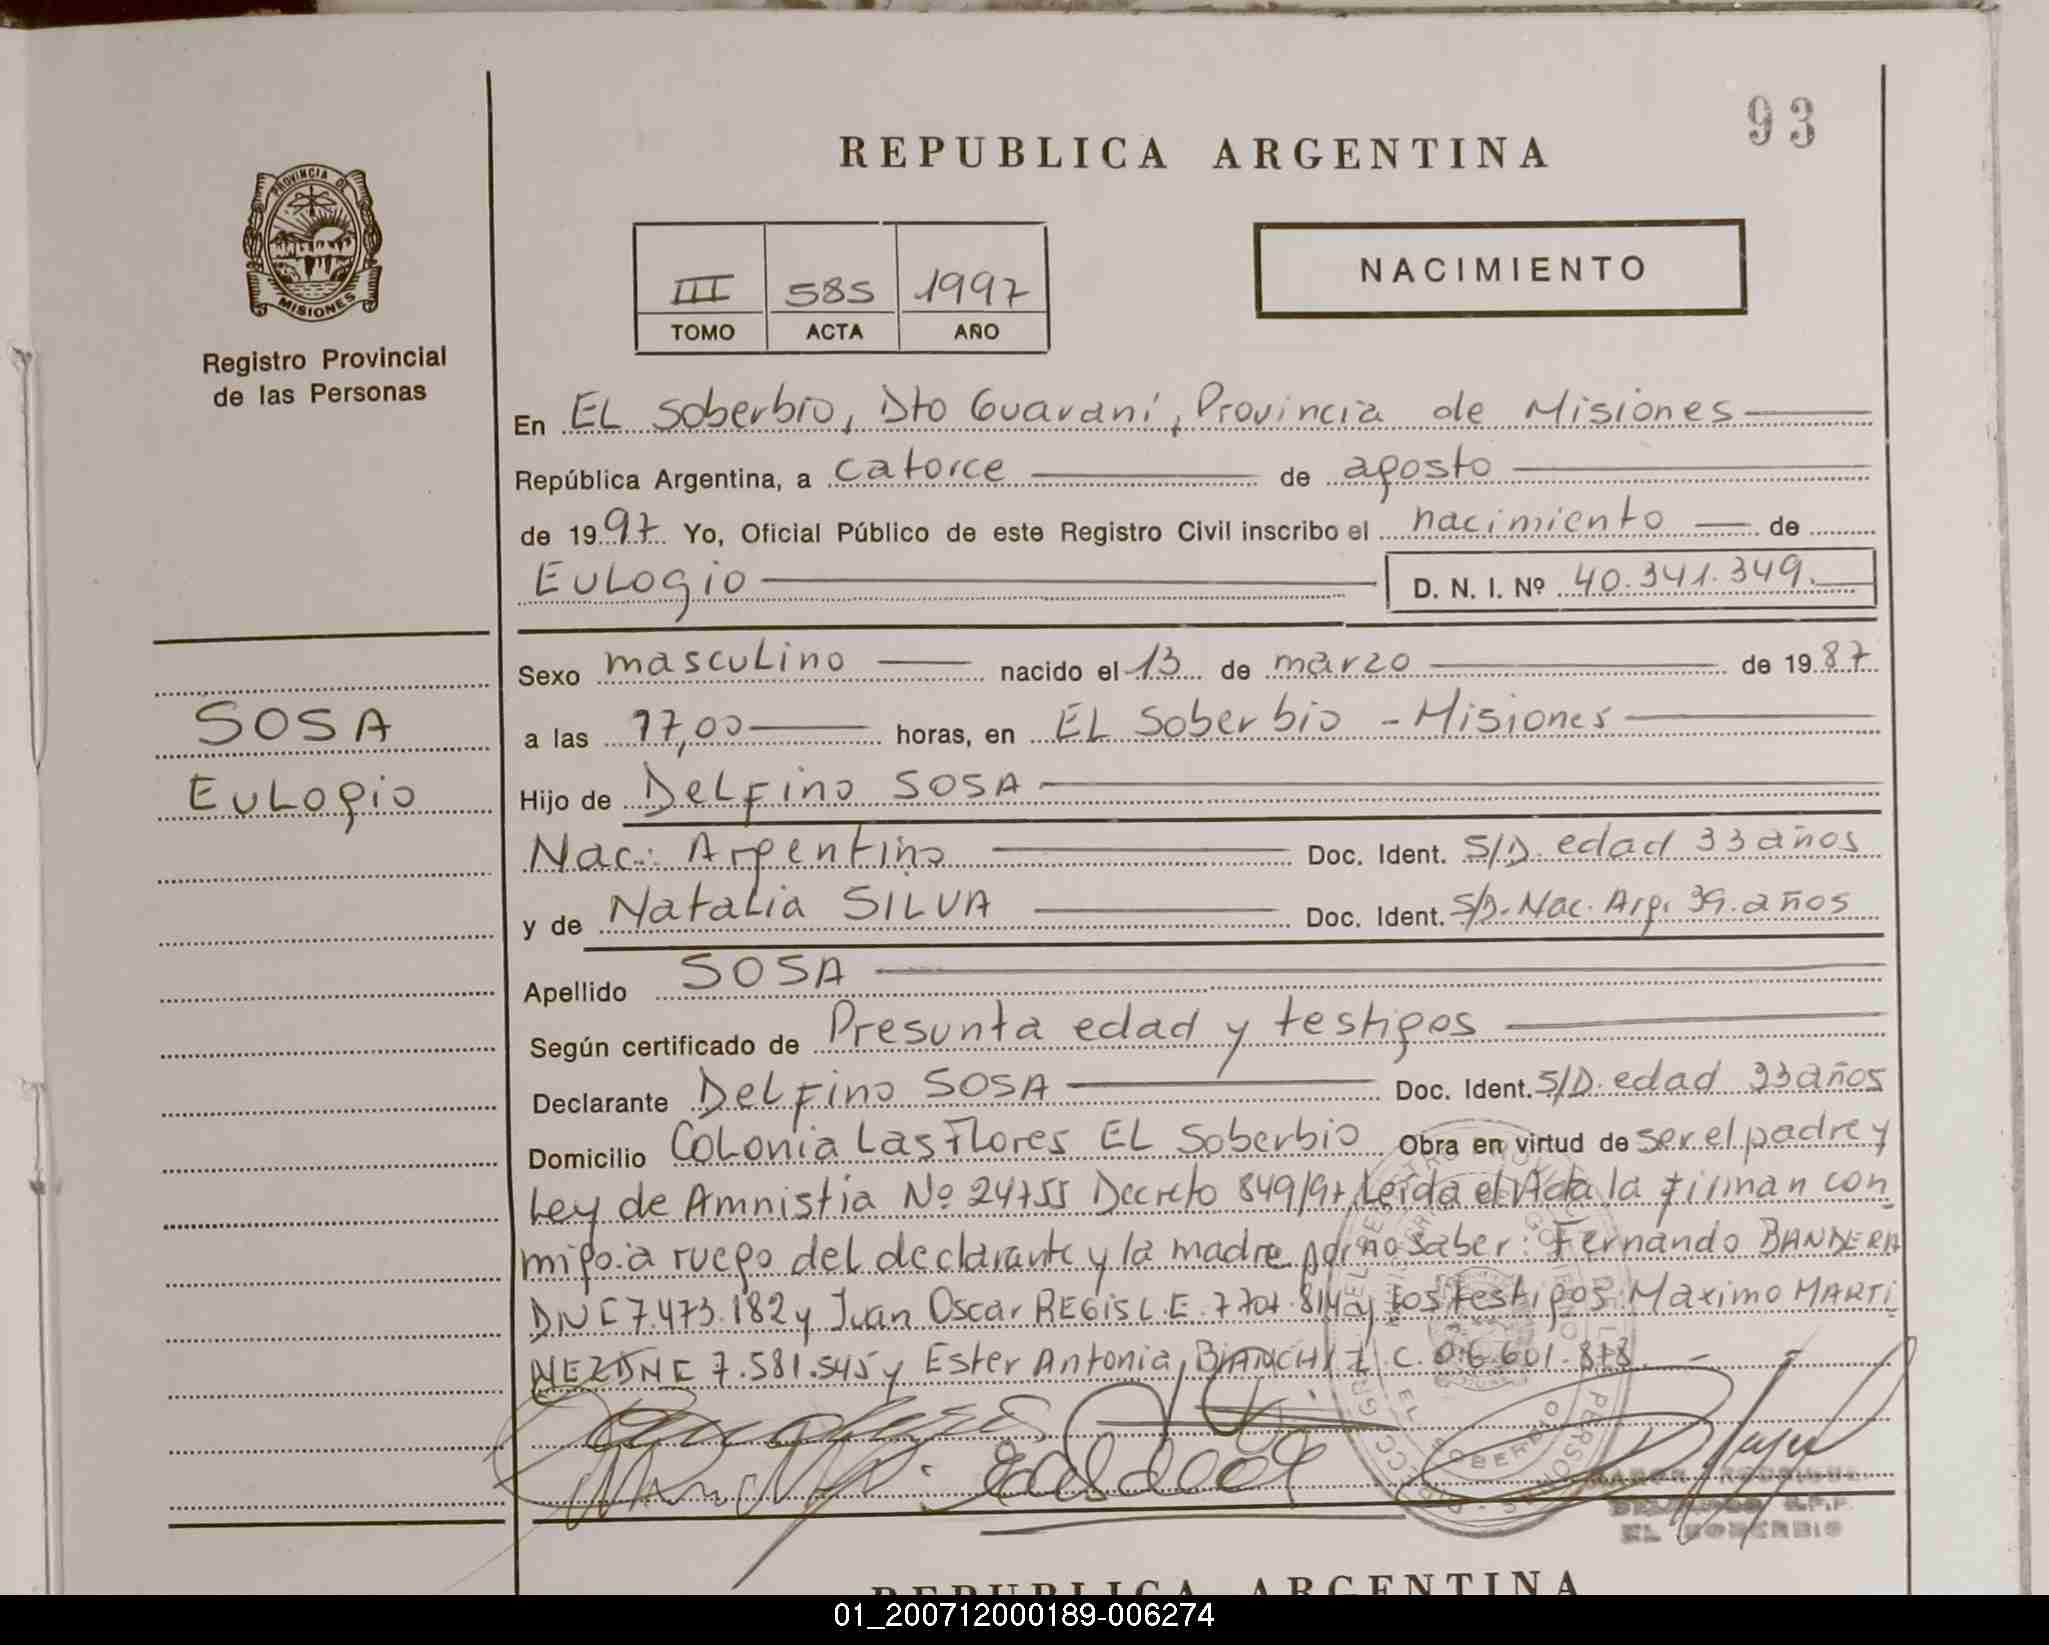 93
REPUBLICA ARGENTINA
PROVINCIA DE
MISIONES
Registro Provincial
de las Personas
III 585 1997
TOMO ACTA AÑO
NACIMIENTO
En EL Soberbio, Dto Guaraní, Provincia de Misiones
República Argentina, a catorce de agosto
de 1997 Yo, Oficial Público de este Registro Civil inscribo el nacimiento de
EULogio D. N. I. Nº 40.341.349.
Sexo mascuLino nacido el 13 de marzo de 1987
SOSA
a las 17,00 horas, en EL Soberbio - Misiones
EuLogio
Hijo de DeLFino SOSA
Nac: Argentino Doc. Ident. S/D. edad 33 años
y de NataLia SILVA Doc. Ident. S/D. Nac. Arg. 39. años
Apellido SOSA
Según certificado de Presunta edad y testigos
Declarante DeLFino SOSA Doc. Ident. S/D. edad 33 años
Domicilio CoLonia Las FLores EL Soberbio Obra en virtud de ser el padre y
Ley de Amnistia Nº 24755 Decreto 849/97 Leida el Acta la firman con
migo.a ruego del declarante y la madre por no saber: Fernando BANDERA
DNI 7.473.182 y Juan Oscar REGIS L.E. 7.707.814 y Los testigos: Maximo MARTI
NEZ DNI 7.581.545 y Ester Antonia BIANCHI L.C. 06.601.878
EL SOBERBIO
EL SOBERBIO
REPUBLICA ARGENTINA
01_200712000189-006274